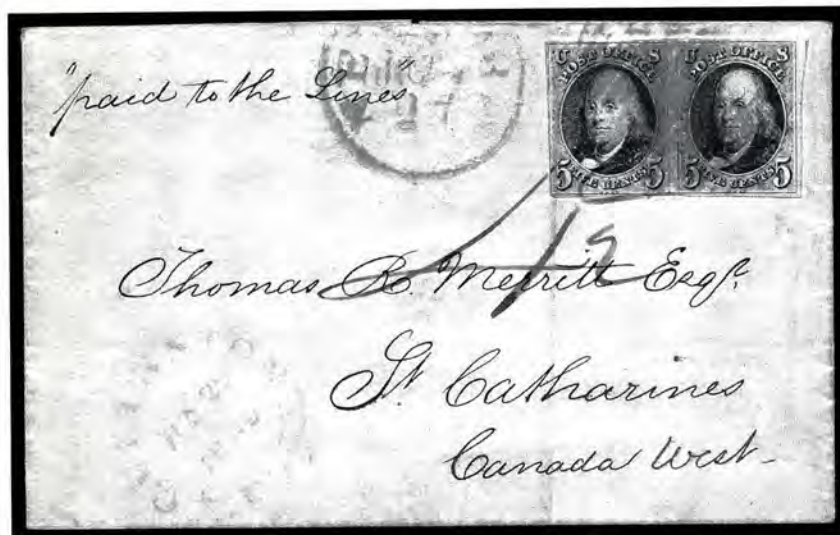 "paid to the Lines"
U S
POST OFFICE
5 FIVE CENTS 5
U S
POST OFFICE
5 FIVE CENTS 5
Thomas R. Merritt Esqr.
St. Catharines
Canada West